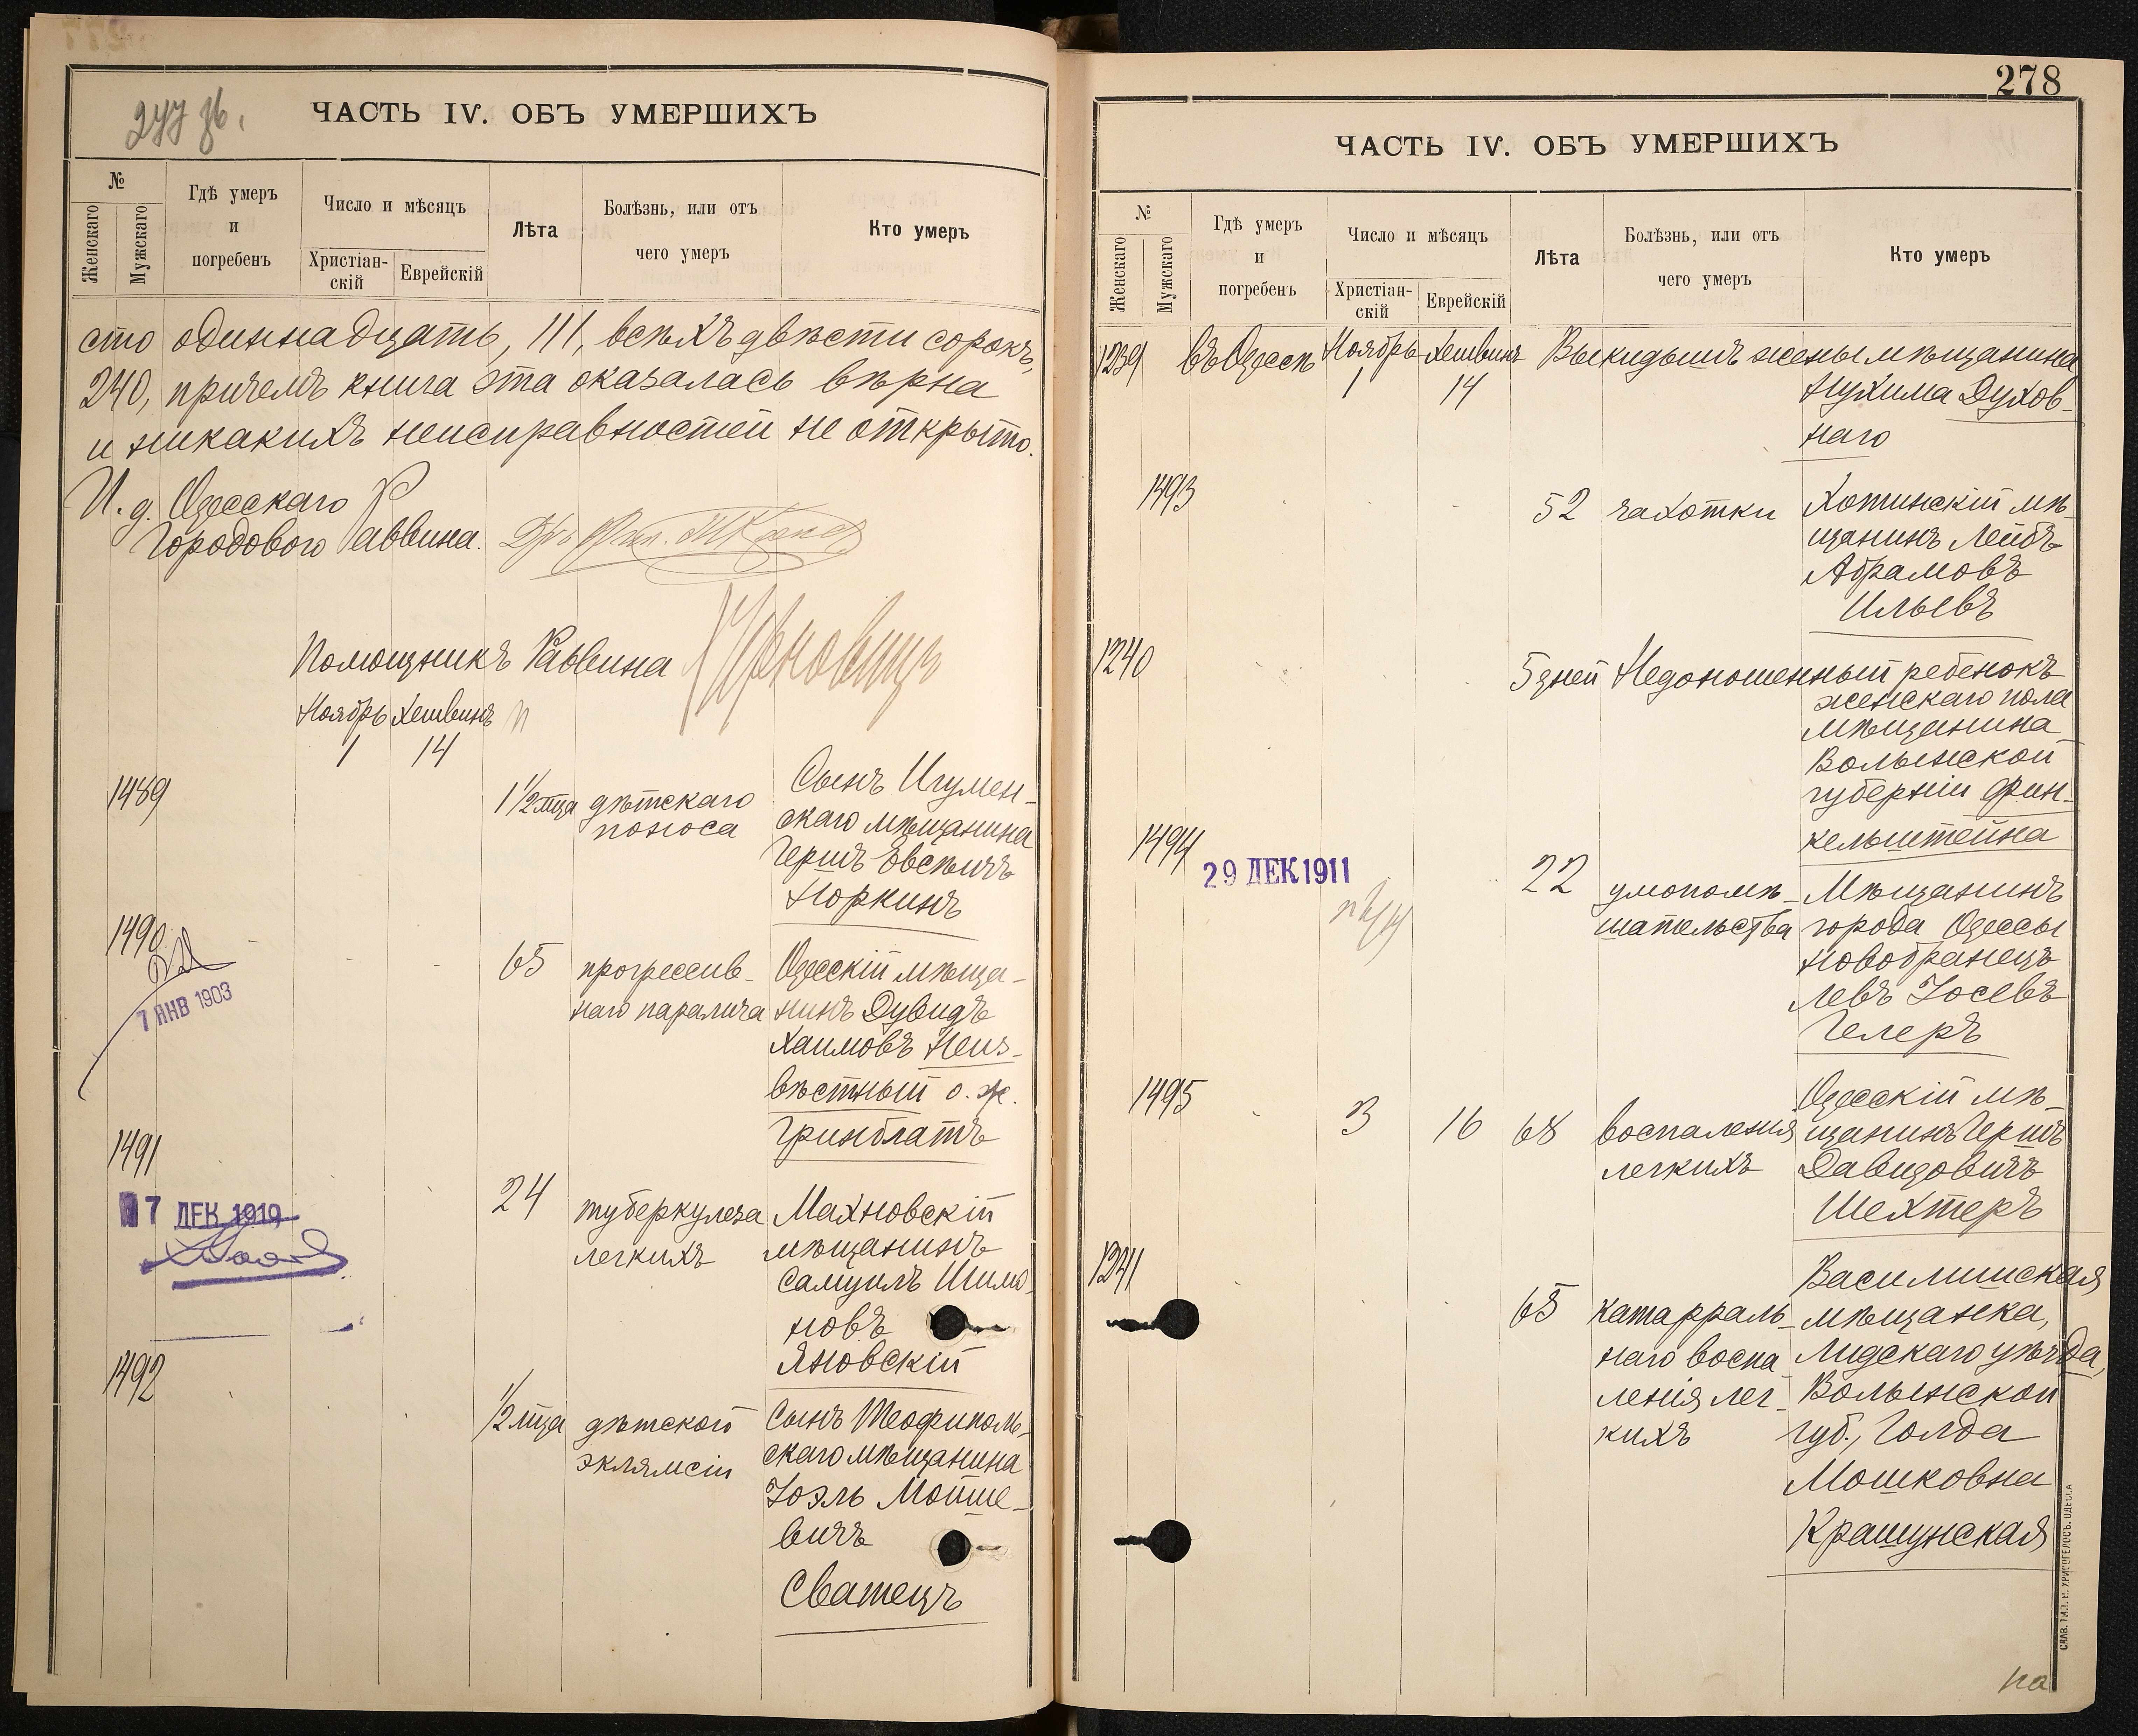 277 об.
ЧАСТЬ IV. ОБЪ УМЕРШИХЪ
№
Женскаго
Мужскаго
Гдѣ умеръ
и
погребенъ
Число и мѣсяцъ
Христіан-
скій
Еврейскій
Лѣта
Болѣзнь, или отъ
чего умеръ
Кто умеръ
сто одиннадцать, 111, всѣхъ двѣсти сорокъ,
240, причемъ книга эта оказалась вѣрна
и никакихъ неисправностей не открыто.
И. д. Одесскаго
Городового Раввина.
Помощникъ Раввина
Ноябрь Хешвинъ
1 14
1489
1 1/2 мца дѣтскаго
поноса
Сынъ Игумен-
скаго мѣщанина
Гершъ Овсѣичъ
Норкинъ
1490
7 ЯНВ 1903
65 прогрессив-
наго паралича
Одесскій мѣща-
нинъ Дувидъ
Хаимовъ Неиз-
вѣстный о. ж.
Гринблатъ
1491
7 ДЕК 1919
24 туберкулеза
легкихъ
Махновскій
мѣщанинъ
Самуилъ Шимо-
новъ
Яновскій
1492
1/2 мца дѣтской
эклямсіи
Сынъ Теофиполь-
скаго мѣщанина
Іоэль Мойше-
вичъ
Сватецъ
278
ЧАСТЬ IV. ОБЪ УМЕРШИХЪ
№
Женскаго
Мужскаго
Гдѣ умеръ
и
погребенъ
Число и мѣсяцъ
Христіан-
скій
Еврейскій
Лѣта
Болѣзнь, или отъ
чего умеръ
Кто умеръ
1239 въ Одессѣ Ноябрь Хешвинъ Выкидышъ жены мѣщанина
1 14 Нухима Духов-
наго
1493
52 чахотки Хотинскій мѣ-
щанинъ Лейбъ
Абрамовъ
Ильевъ
1240
5 дней Недоношенный ребенокъ
женскаго пола
мѣщанина
Волынской
губерніи Фин-
кельштейна
1494
29 ДЕК 1911
22 умопомѣ-
шательства
Мѣщанинъ
города Одессы
новобранецъ
Левъ Іосевъ
Гелеръ
1495
3 16 68 воспаленія
легкихъ
Одесскій мѣ-
щанинъ Гершъ
Давидовичъ
Шехтеръ
1241
65 катарраль-
наго воспа-
ленія лег-
кихъ
Василишская
мѣщанка,
Лидскаго уѣзда,
Волынской
губ., Голда
Мошковна
Крашунская
СЛАВ. ТИП. Н. ХРИСОГЕЛОСЪ. ОДЕССА
на